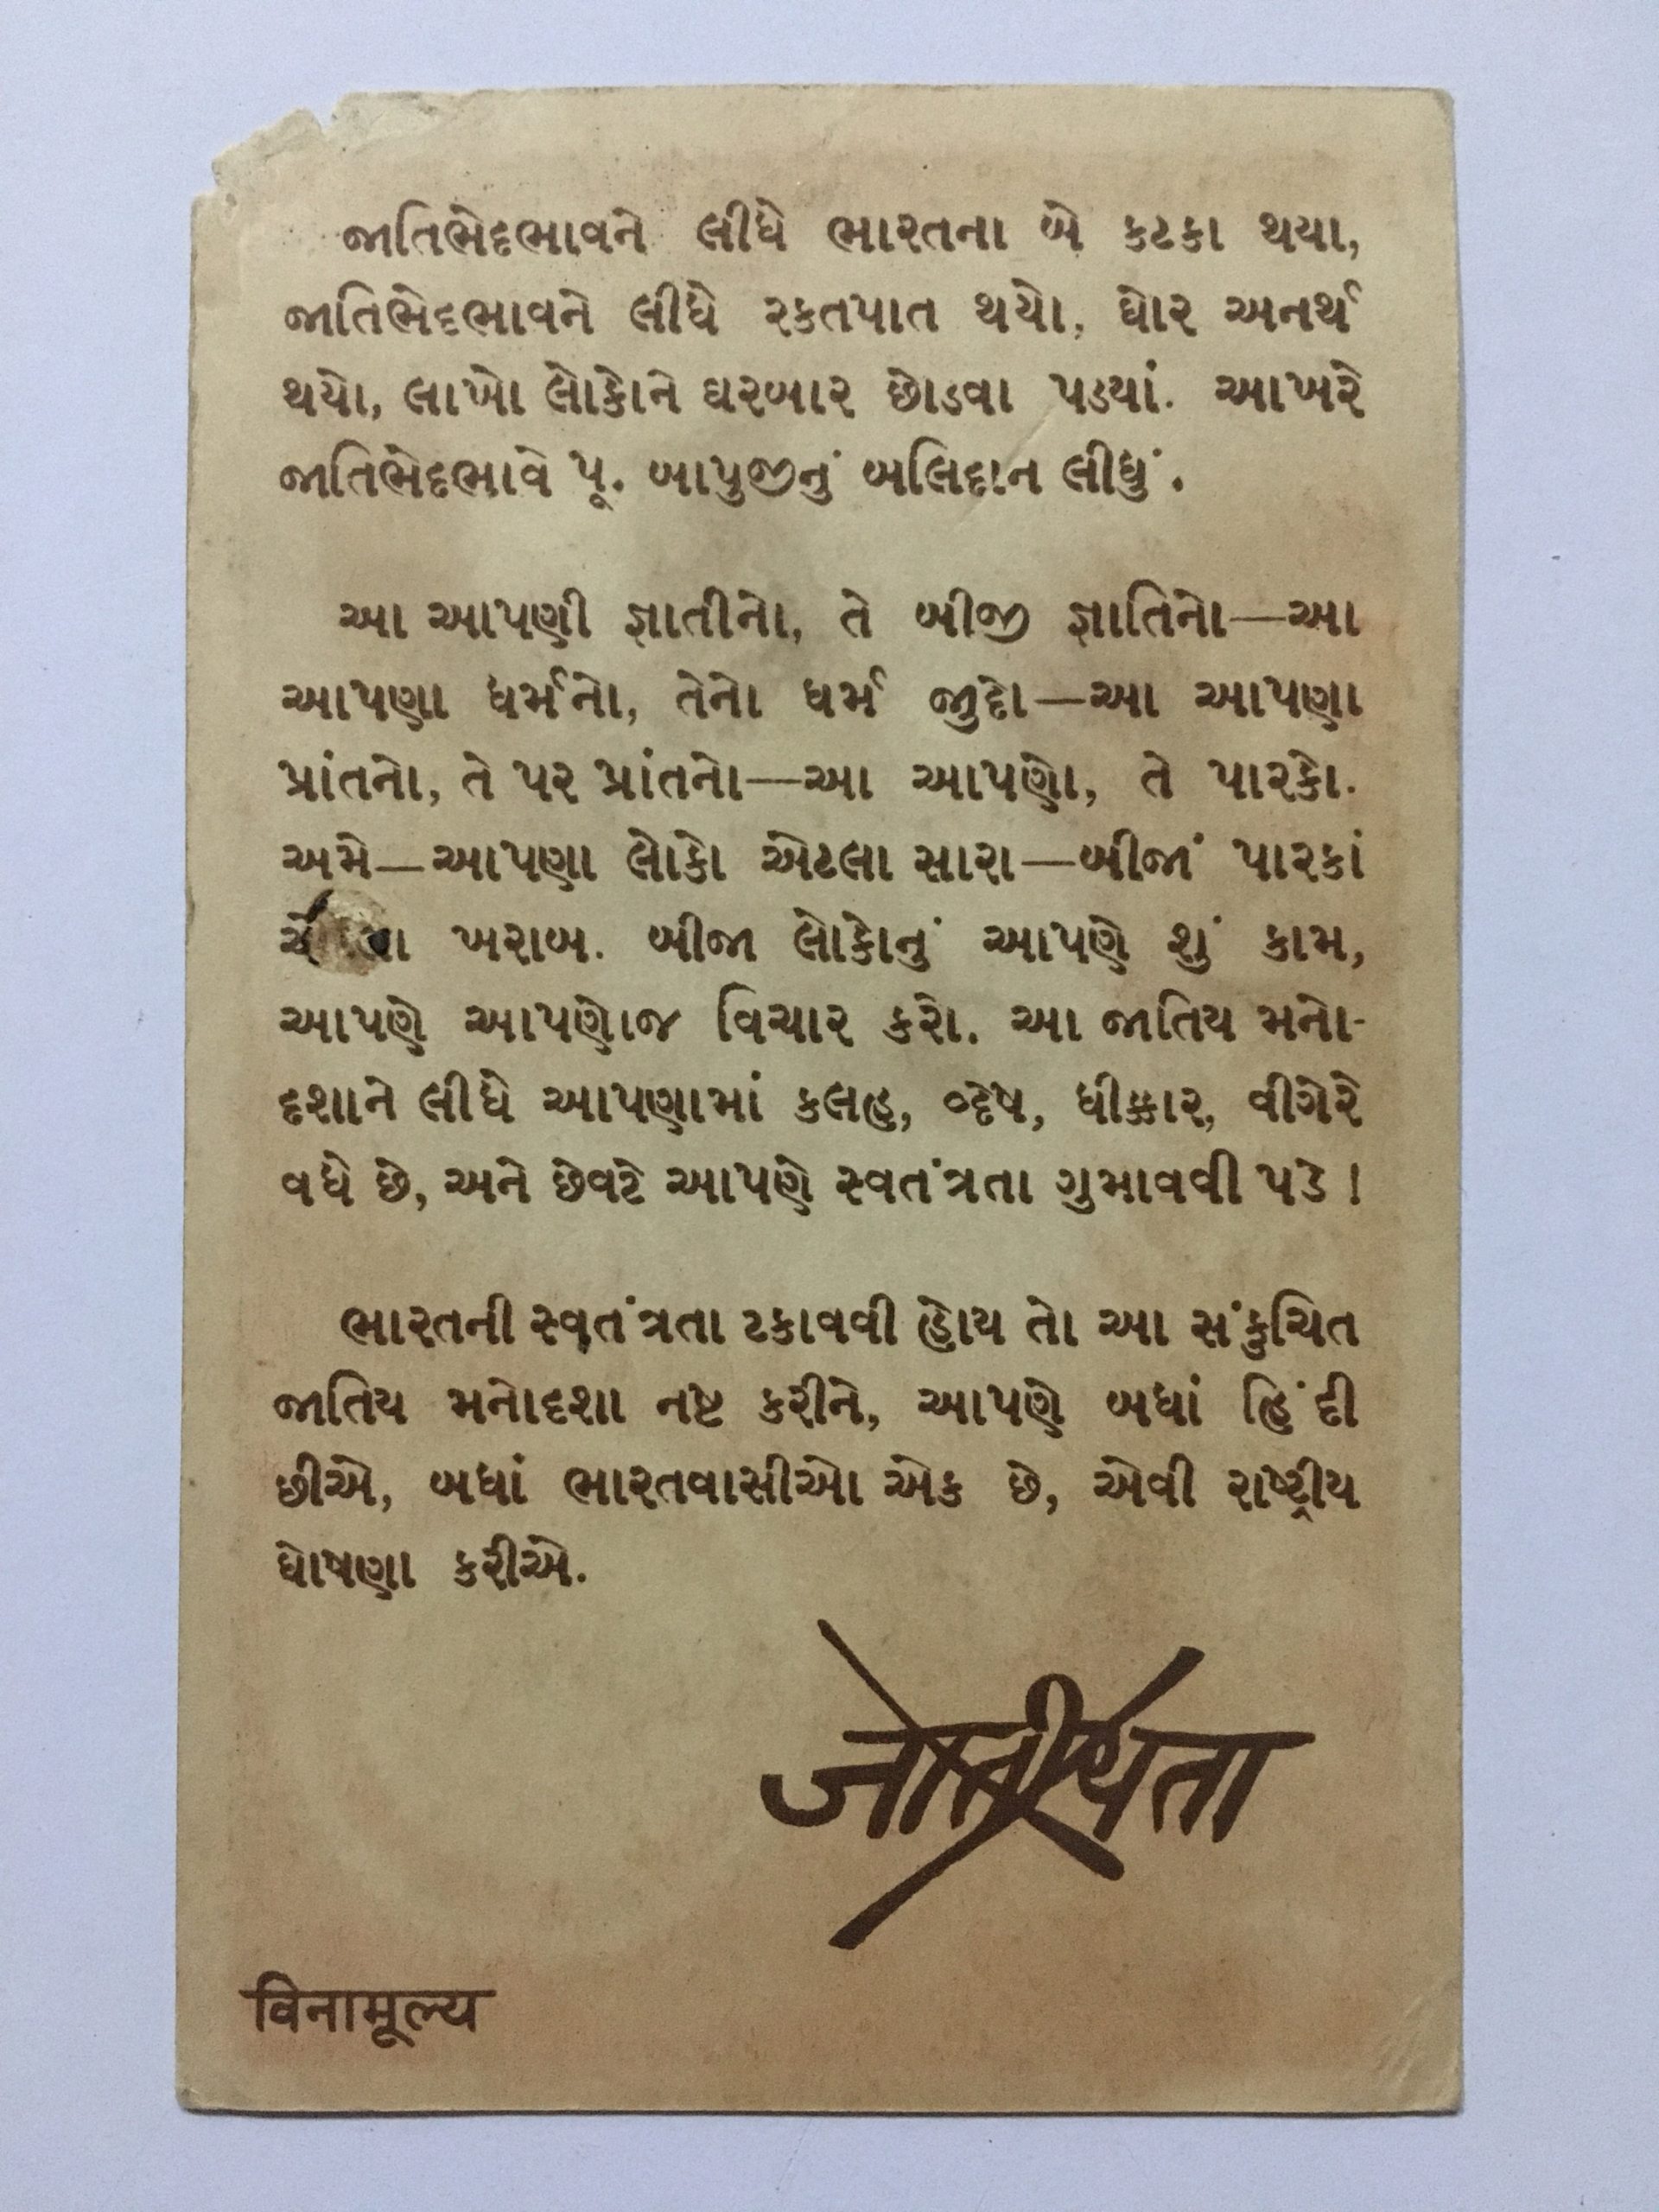 જાતિભેદભાવને લીધે ભારતના બે કટકા થયા,
જાતિભેદભાવને લીધે રકતપાત થયો, ઘોર અનર્થ
થયો, લાખો લોકોને ઘરબાર છોડવા પડયાં. આખરે
જાતિભેદભાવે પૂ. બાપુજીનું બલિદાન લીધું.
આ આપણી જ્ઞાતીનો, તે બીજી જ્ઞાતિનો—આ
આપણા ધર્મનો, તેનો ધર્મ જુદો—આ આપણા
પ્રાંતનો, તે પર પ્રાંતનો—આ આપણો, તે પારકો.
અમે—આપણા લોકો એટલા સારા—બીજાં પારકાં
ખરાબ. બીજા લોકોનું આપણે શું કામ,
આપણે આપણોજ વિચાર કરો. આ જાતિય મનો-
દશાને લીધે આપણામાં કલહ, વ્દેષ, ધીક્કાર, વીગેરે
વધે છે, અને છેવટે આપણે સ્વતંત્રતા ગુમાવવી પડે !
ભારતની સ્વતંત્રતા ટકાવવી હોય તો આ સંકુચિત
જાતિય મનોદશા નષ્ટ કરીને, આપણે બધાં હિંદી
છીએ, બધાં ભારતવાસીઓ એક છે, એવી રાષ્ટ્રીય
ઘોષણા કરીએ.
जातीयता
विनामूल्य